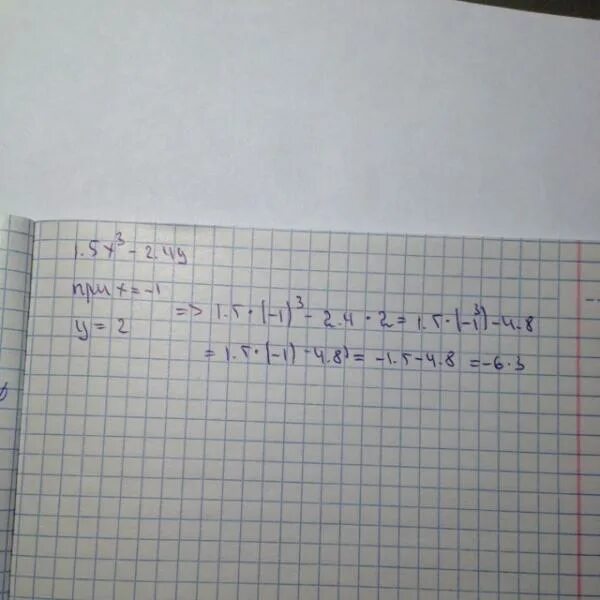 1.5x³ - 2.4y
при x = -1
y = 2
=> 1.5 · (-1)³ - 2.4 · 2 = 1.5 · (-1³) - 4.8
= 1.5 · (-1) - 4.8) = -1.5 - 4.8 = -6.3